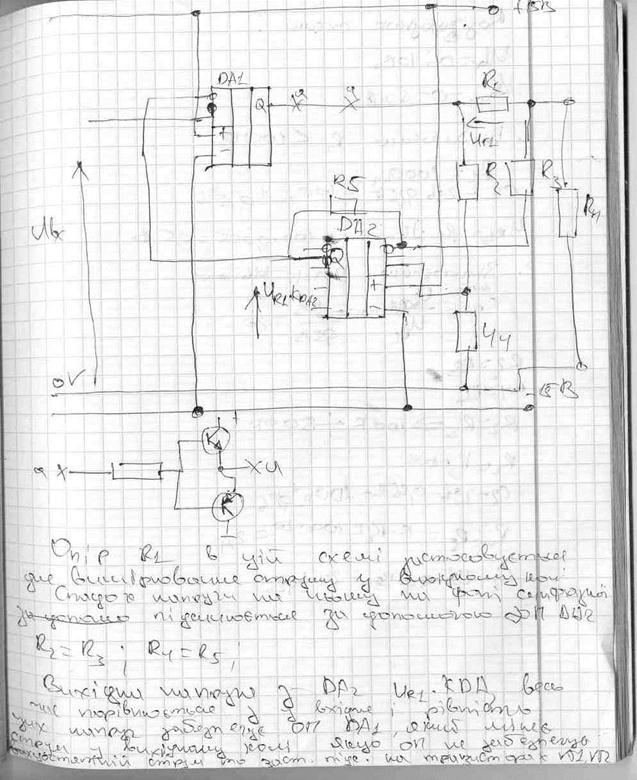 +15В
DA1
Q
a
R1
UR1
R2
R3
R5
DA2
Q
Uвх
UR1·KDA2
0V
-15В
a X
X
+
Опір R1 в цій схемі застосовується
для вимірювання струму у вихідному колі
Спадок напруги на ньому на фоні синфазної
підсилюється за допомогою ОП DA2
R2 = R3 ; R4 = R5 ;
Вихідна напруга з DA2 UR1·KDA2 весь
час порівнюється з вхідною і рівність
цих напруг забезпечує ОП DA1, який змінює
струм у вихідному колі якщо ОП не забезпечує
струм то заст. підс. на транзисторах VT1 VT2